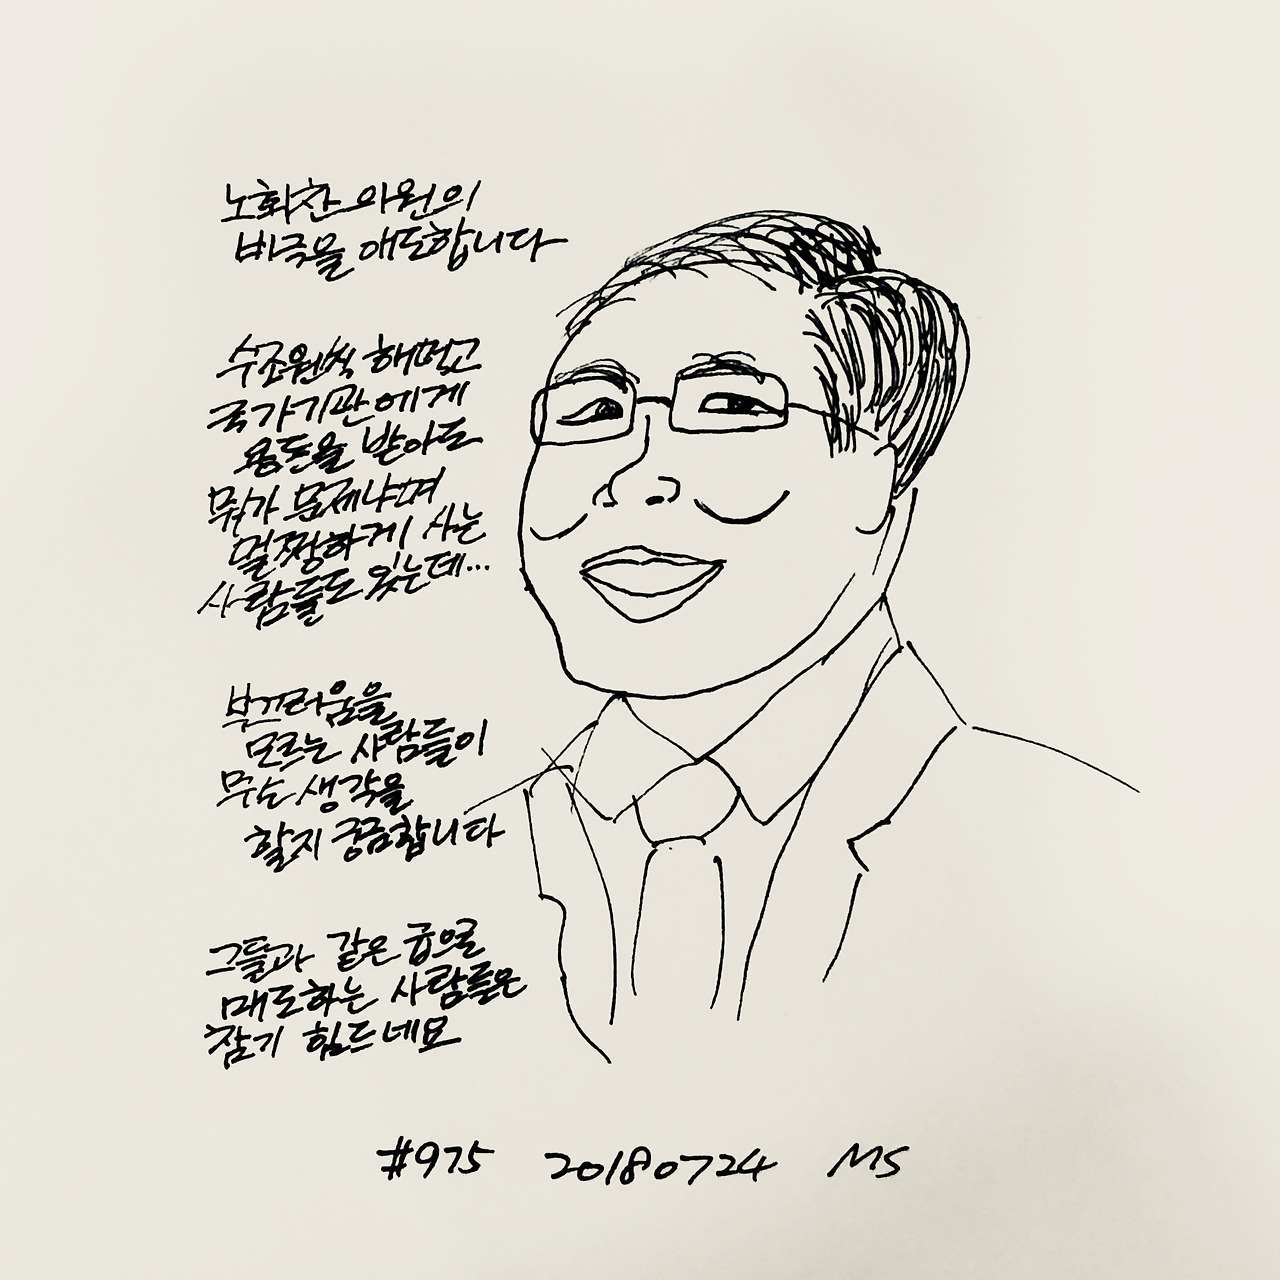 노회찬 의원의
비극을 애도합니다
수조원씩 해먹고
국가기관에게
용돈을 받아도
뭐가 문제냐며
멀쩡하게 사는
사람들도 있는데...
부끄러움을
모르는 사람들이
무슨 생각을
할지 궁금합니다
그들과 같은 급으로
매도하는 사람들은
참기 힘드네요
#975 20180724 MS